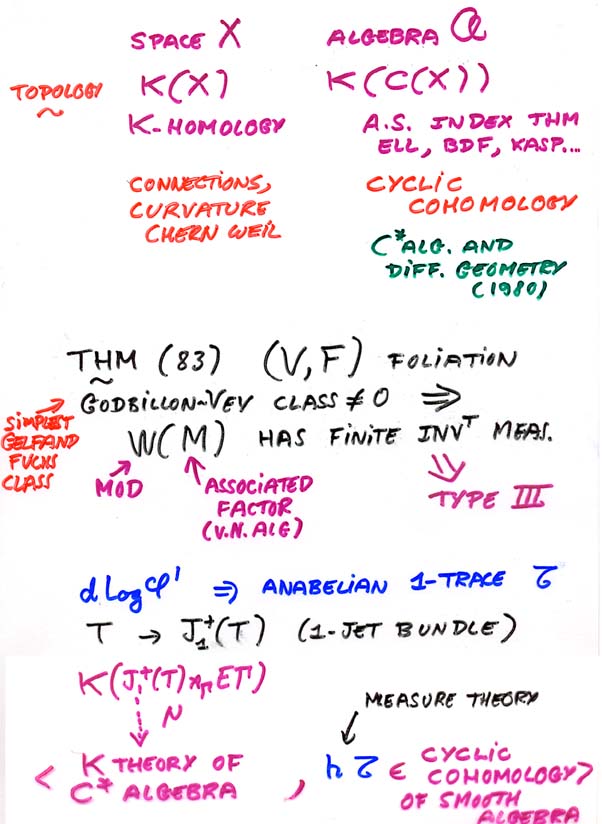 SPACE X ALGEBRA A
TOPOLOGY K(X) K(C(X))
K-HOMOLOGY A.S. INDEX THM
ELL, BDF, KASP....
CONNECTIONS, CYCLIC
CURVATURE COHOMOLOGY
CHERN WEIL
C* ALG. AND
DIFF. GEOMETRY
(1980)
THM (83) (V,F) FOLIATION
GODBILLON-VEY CLASS ≠ 0 ⇒
SIMPLEST
GELFAND
FUCHS
CLASS
W(M) HAS FINITE INVᵀ MEAS.
MOD
ASSOCIATED
FACTOR
(V.N. ALG)
⇓
TYPE III
d Log φ' ⇒ ANABELIAN 1-TRACE τ
T → J₁⁺(T) (1-JET BUNDLE)
K(J₁⁺(T) ×Γ EΓ)
MEASURE THEORY
< K THEORY OF
C* ALGEBRA
, τ ∈ CYCLIC
COHOMOLOGY >
OF SMOOTH
ALGEBRA